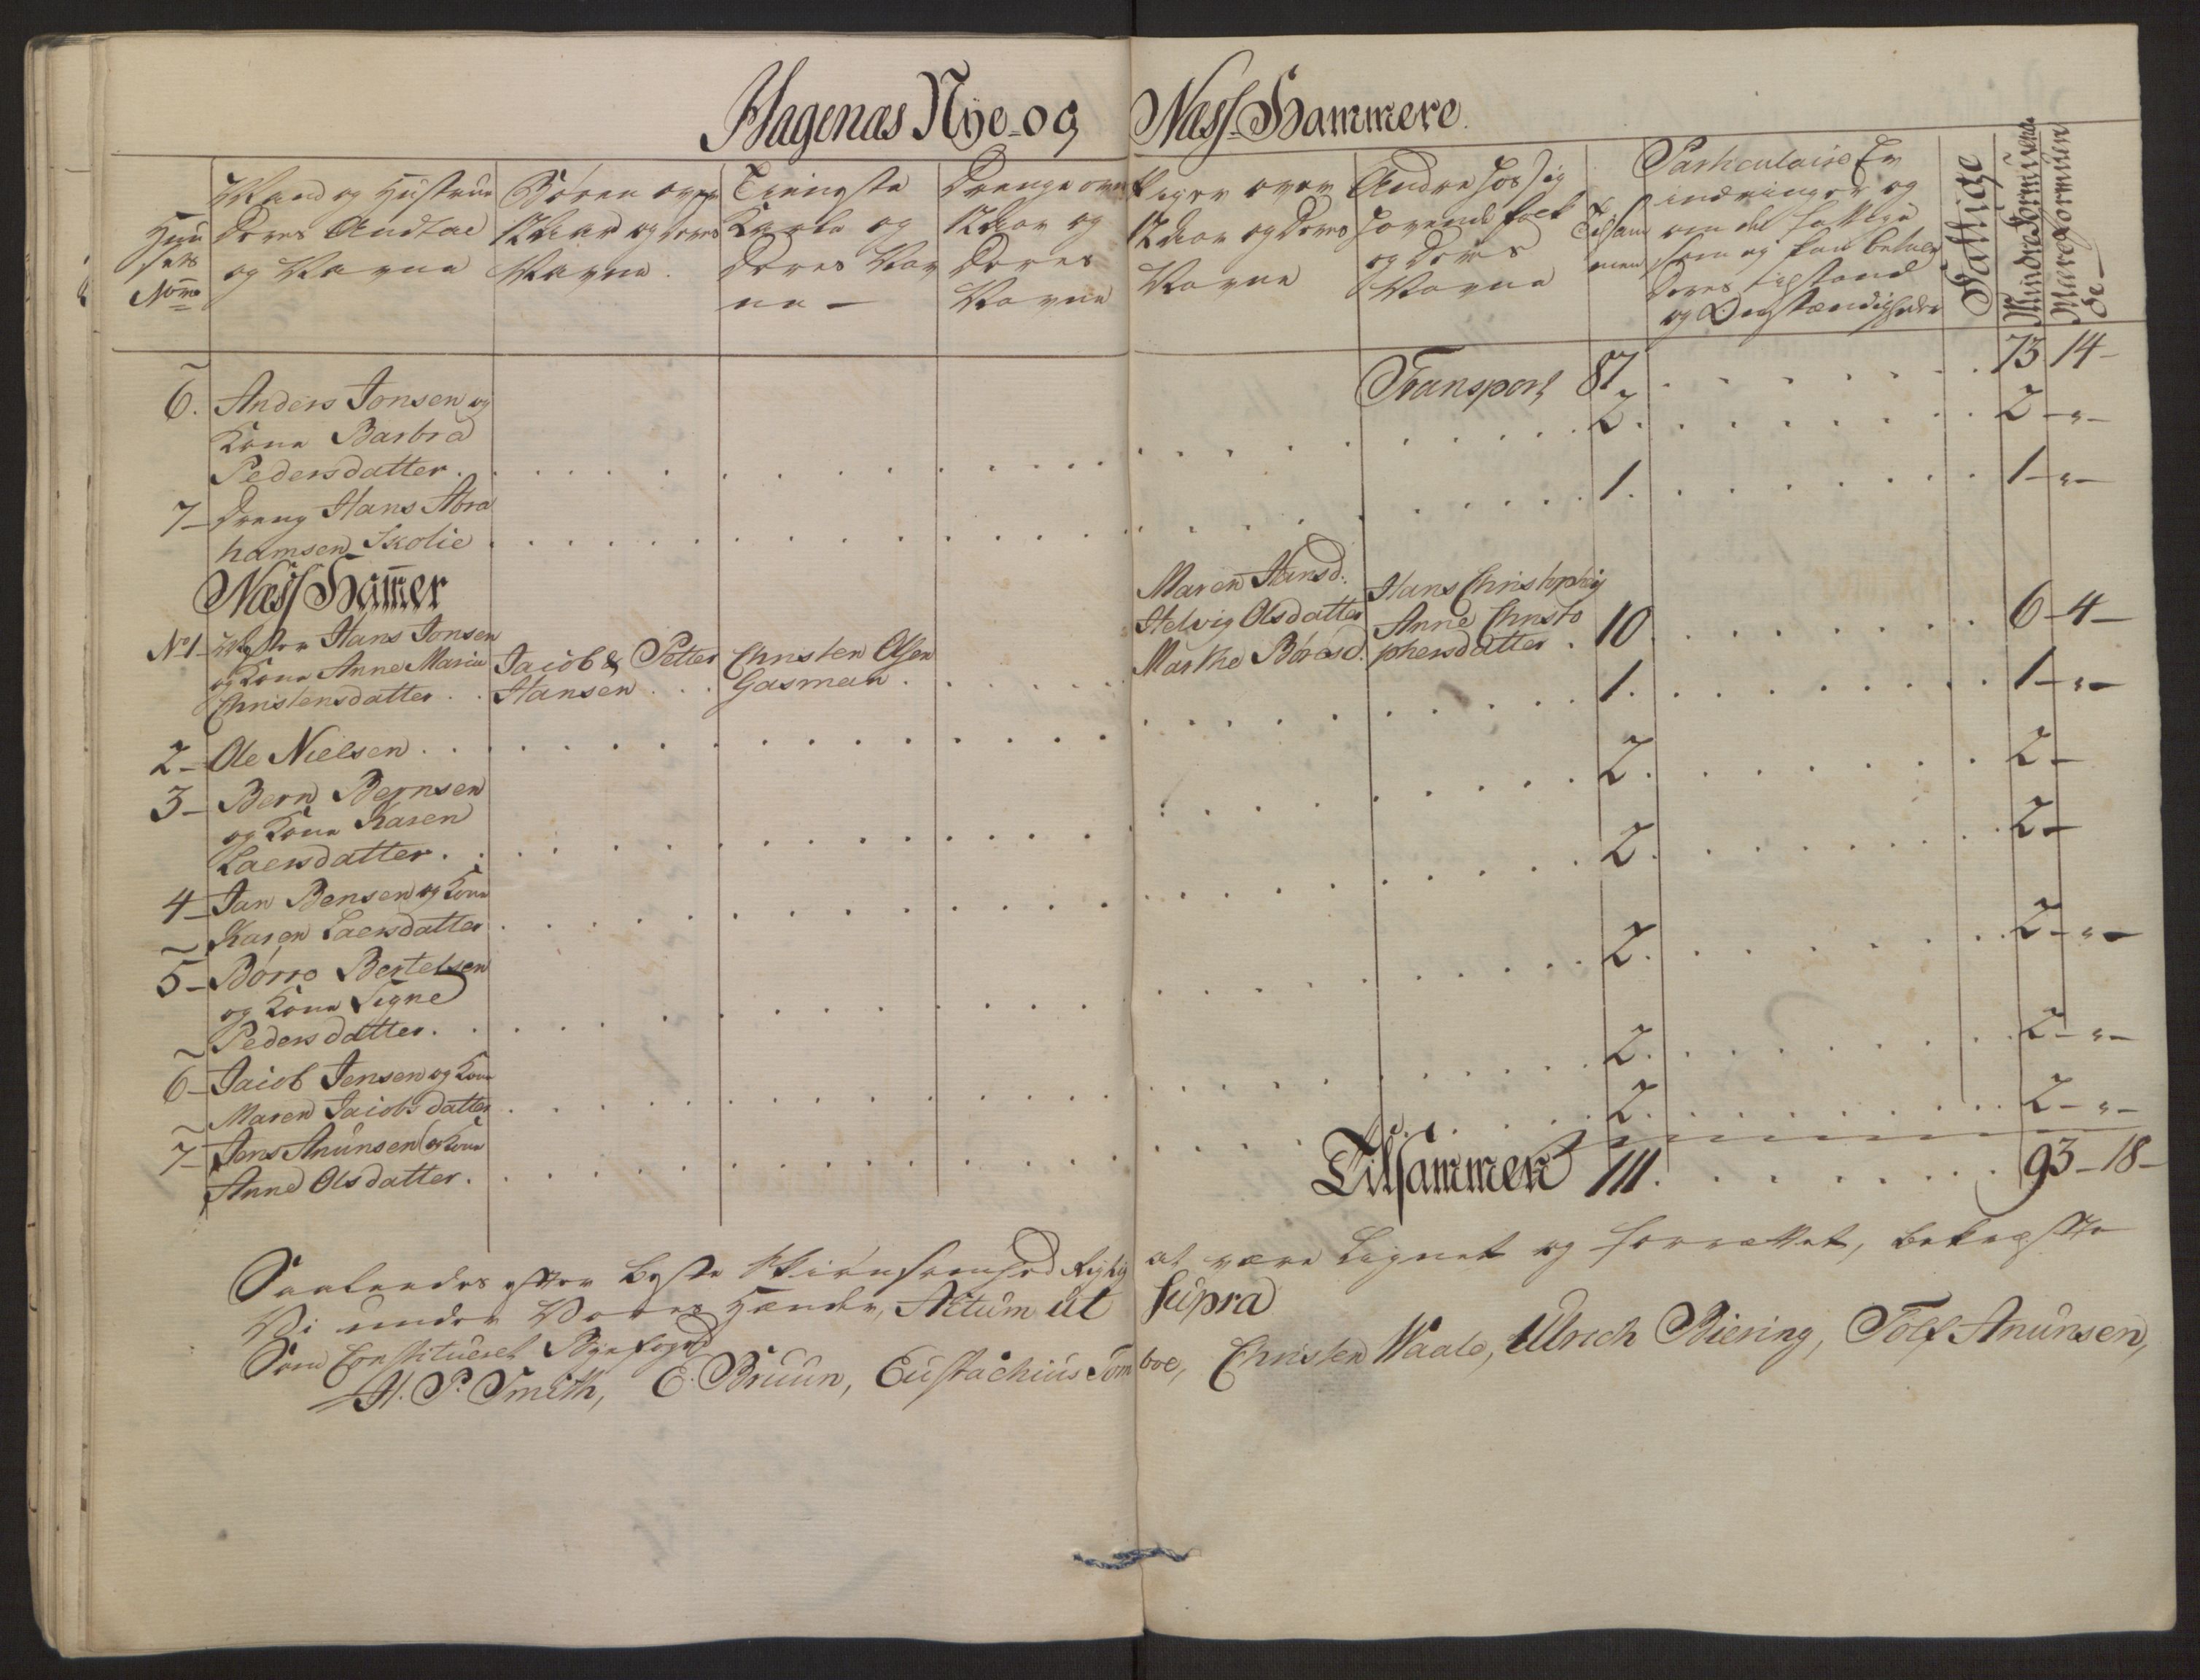 Hagenæs Nye og Næss Hammere
Huu
sets
Nom̅
Mand og Hustrue
Deres Andtal
og Navne
Børen over
12 Aar og deres
Navne.
Tieniste
Karle og
Deres Nav
ne —
Drenge over
12 Aar og
Deres
Navne
Piger over
12 Aar og Deres
Navne
Andre hos sig
havende folk
og Deres
Navne
Tilsam
men
Particulaire Er
indringer og
om de fattige
som ej kan betale
Deres tilstand
og Omstændigheder
Fattige
Mindre formuende
Meere formuen
de —
Transport 87 73 14 -
6. Anders Jonsen og
Kone Barbra
Pedersdatter . 2. 2 - „ -
7 - Dreng Hans Abra
hamsen Skolie . 1. 1 - „ -
Næss Ham̅er
No 1 - Mester Hans Jonsen
og Kone Anne Maria
Christensdatter . .
Jacob & Petter
Hansen . . .
Christen Olsen
Gasman .
Maren Hansd:
Helvig Olsdatter
Marthe Børesd:
Hans Christophers
Anne Christo
phersdatter . 10 6 - 4 -
2 - Ole Nielsen . . 1. 1 - „ -
3 - Bern Bernsen
og Kone Karen
Laersdatter . . 2. 2 -
4 - Jan Bensen og Kone
Karen Laersdatter . 2. 2 -
5 - Børre Bertelsen
og Kone Signe
Pedersdatter . . 2. 2 - „ -
6 - Jacob Jensen og Kone
Maren Jacobsdatter . 2. 2 - „ -
7 - Jens Anunsen og Kone
Anne Olsdatter . 2. 2 - „ -
Tilsammen 111. 93 - 18 -
Saaledes efter beste Skiønsomhed Rigtig at være Lignet og forrættet, bekræfte
Vi under Vores Hænder, Actum ut Supra
Som Constitueret Byefoged
H. P. Smith, E. Bruun, Eustachius Tomboe, Christen Waale, Ulrich Biering, Tolf Anunsen,